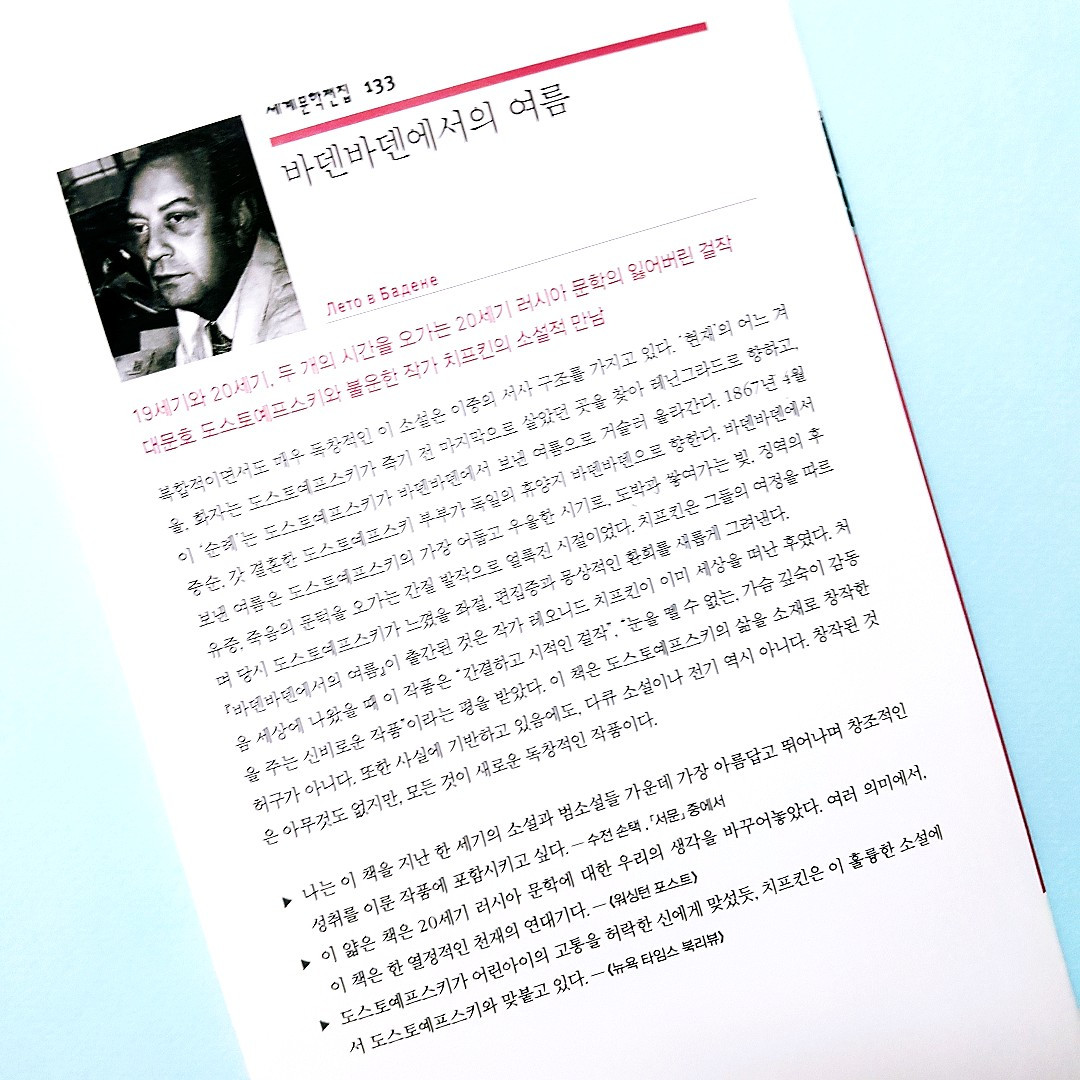 세계문학전집 133
바덴바덴에서의 여름
Лето в Бадене
19세기와 20세기, 두 개의 시간을 오가는 20세기 러시아 문학의 잃어버린 걸작
대문호 도스토예프스키와 불운한 작가 치프킨의 소설적 만남
복합적이면서도 매우 독창적인 이 소설은 이중의 서사 구조를 가지고 있다. ‘현재’의 어느 겨
울, 화자는 도스토예프스키가 죽기 전 마지막으로 살았던 곳을 찾아 레닌그라드로 향하고,
이 ‘순례’는 도스토예프스키가 바덴바덴에서 보낸 여름으로 거슬러 올라간다. 1867년 4월
중순, 갓 결혼한 도스토예프스키 부부가 독일의 휴양지 바덴바덴으로 향한다. 바덴바덴에서
보낸 여름은 도스토예프스키의 가장 어둡고 우울한 시기로, 도박과 쌓여가는 빚, 징역의 후
유증, 죽음의 문턱을 오가는 간질 발작으로 얼룩진 시절이었다. 치프킨은 그들의 여정을 따르
며 당시 도스토예프스키가 느꼈을 좌절, 편집증과 몽상적인 환희를 새롭게 그려낸다.
『바덴바덴에서의 여름』이 출간된 것은 작가 레오니드 치프킨이 이미 세상을 떠난 후였다. 처
음 세상에 나왔을 때 이 작품은 “간결하고 시적인 걸작”, “눈을 뗄 수 없는, 가슴 깊숙이 감동
을 주는 신비로운 작품”이라는 평을 받았다. 이 책은 도스토예프스키의 삶을 소재로 창작한
허구가 아니다. 또한 사실에 기반하고 있음에도, 다큐 소설이나 전기 역시 아니다. 창작된 것
은 아무것도 없지만, 모든 것이 새로운 독창적인 작품이다.
▶ 나는 이 책을 지난 한 세기의 소설과 범소설들 가운데 가장 아름답고 뛰어나며 창조적인
성취를 이룬 작품에 포함시키고 싶다. – 수전 손택, 「서문」 중에서
▶ 이 얇은 책은 20세기 러시아 문학에 대한 우리의 생각을 바꾸어놓았다. 여러 의미에서,
이 책은 한 열정적인 천재의 연대기다. – 《워싱턴 포스트》
▶ 도스토예프스키가 어린아이의 고통을 허락한 신에게 맞섰듯, 치프킨은 이 훌륭한 소설에
서 도스토예프스키와 맞붙고 있다. – 《뉴욕 타임스 북리뷰》